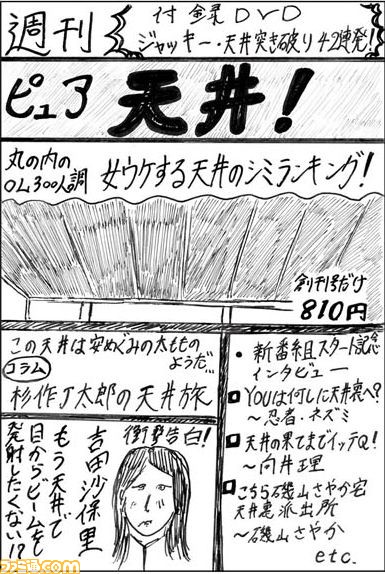 週刊
付録DVD
ジャッキー・天井突き破り42連発!
ピュア天井!
丸の内の
OL300人調
女ウケする天井のシミランキング!
創刊号だけ
810円
この天井は安めぐみの太もものようだ…
コラム
杉作J太郎の天井旅
衝撃告白!
吉田沙保里
もう天井で
目からビームを
発射したくない!?
・新番組スタート記念
インタビュー
YOUは何しに天井裏へ?
～忍者・ネズミ
天井の果てまでイッテQ!
～向井理
こちら磯山さやか宅
天井裏派出所
～磯山さやか
etc.
ファミ通.com